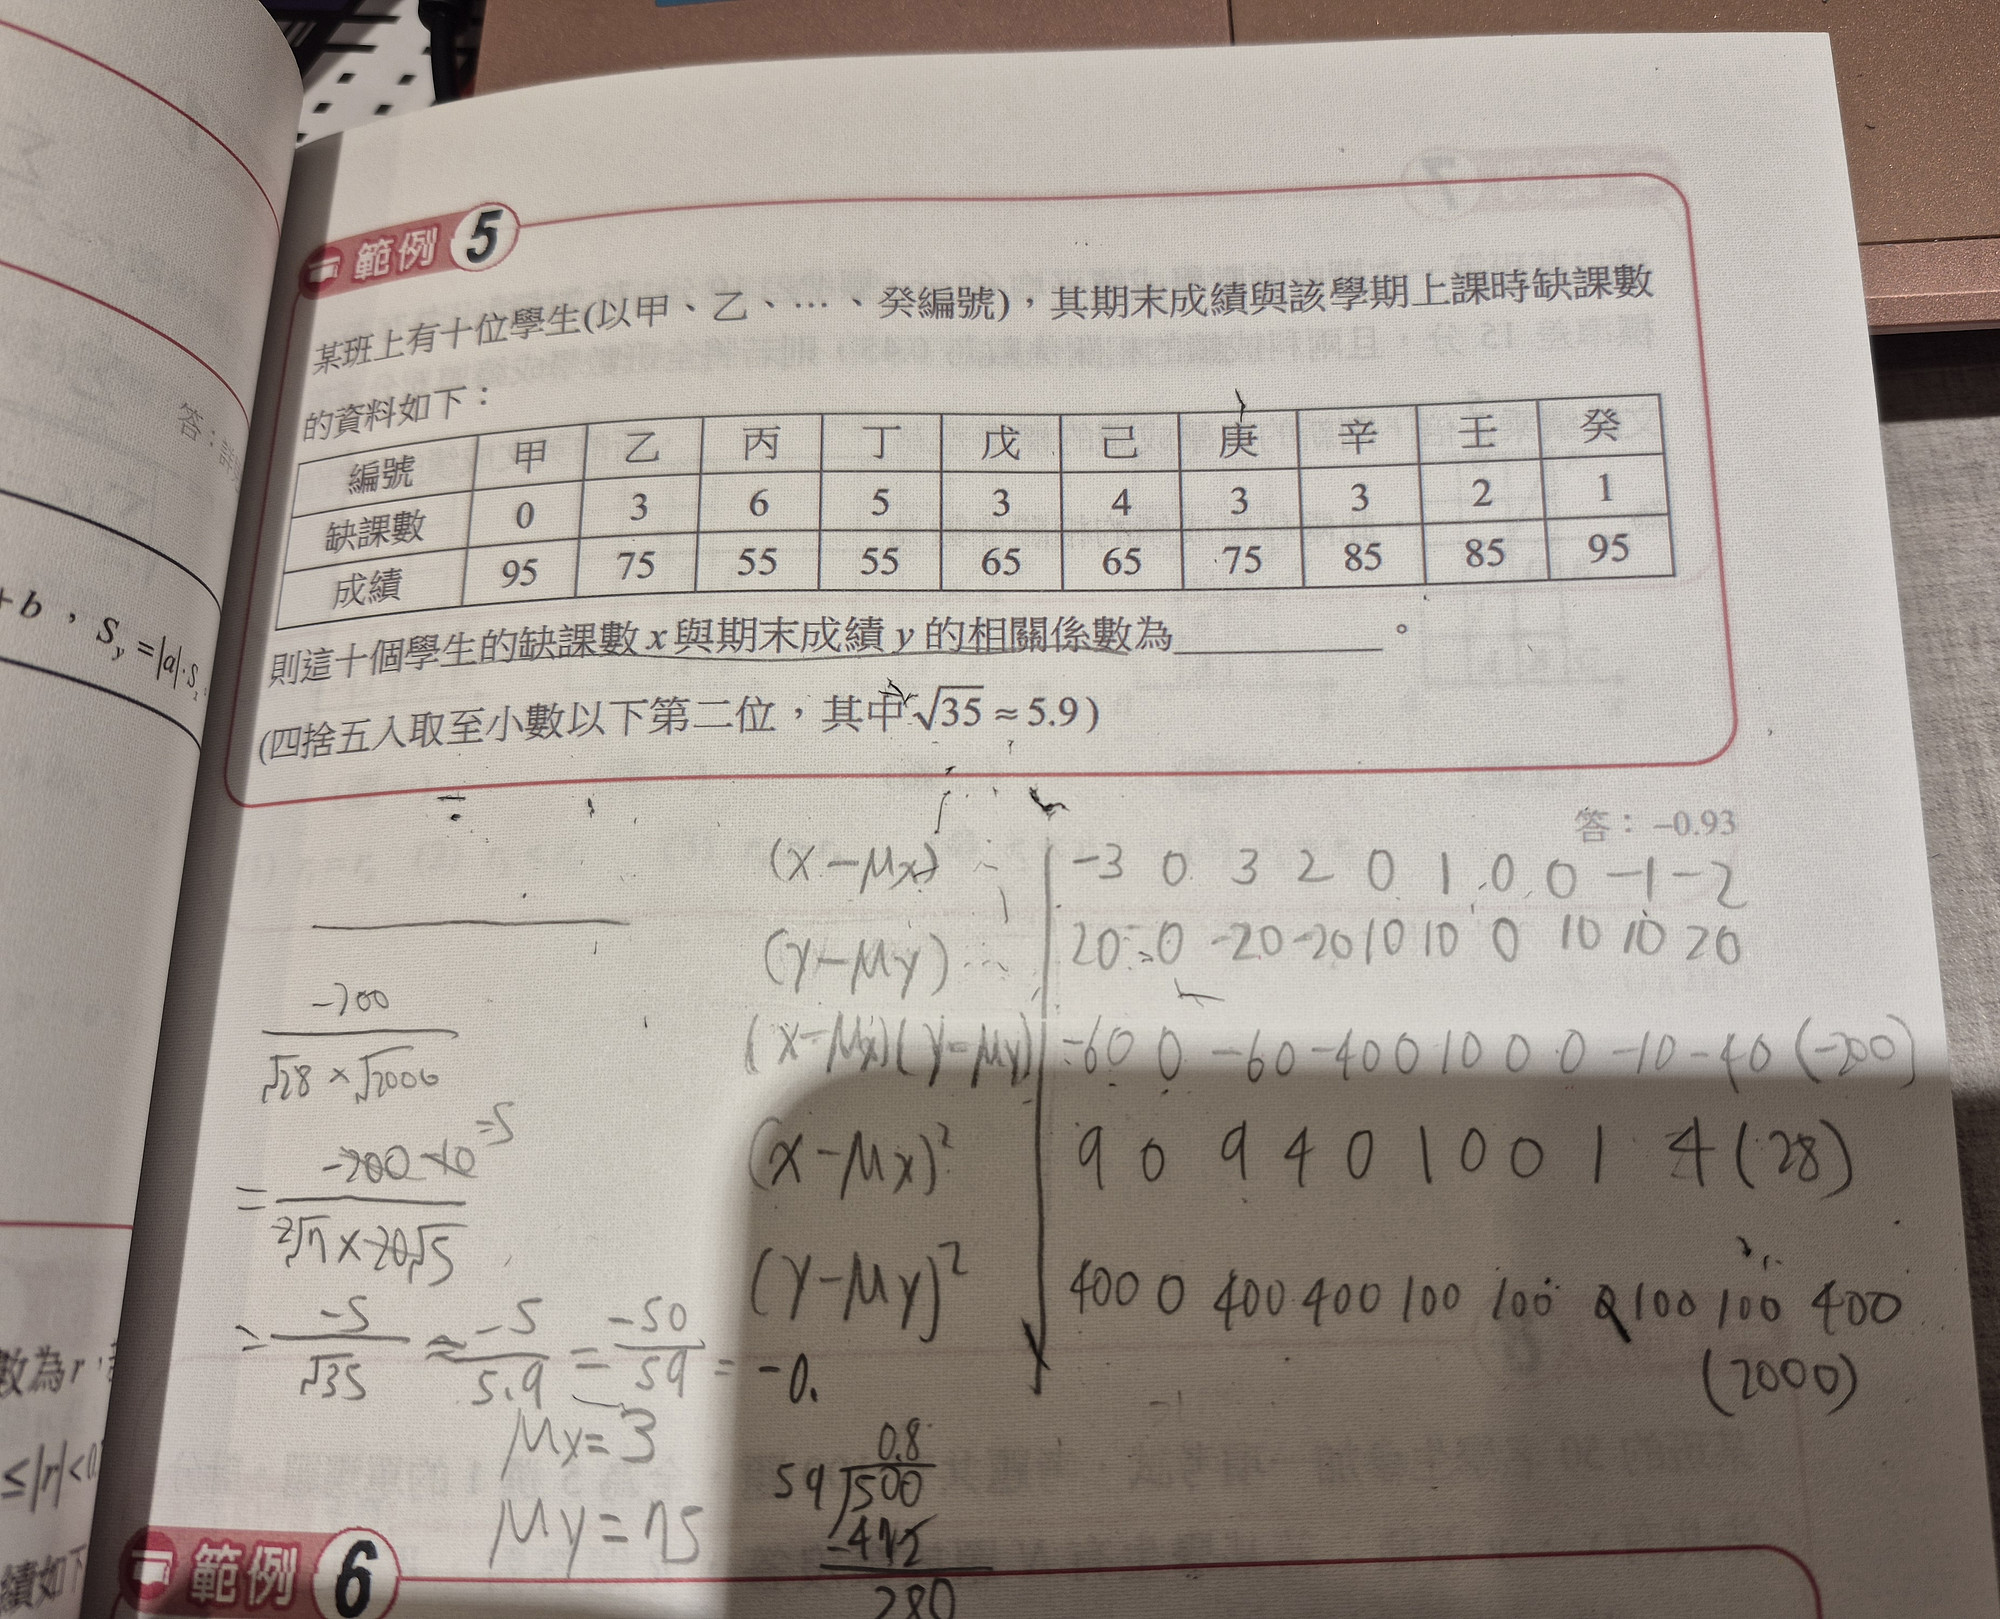 +b，S_y=|a|·S_x
答：詳
數為r，
≤|r|<0.
績如下
範例 5
某班上有十位學生(以甲、乙、…、癸編號)，其期末成績與該學期上課時缺課數
的資料如下：
編號 甲 乙 丙 丁 戊 己 庚 辛 壬 癸
缺課數 0 3 6 5 3 4 3 3 2 1
成績 95 75 55 55 65 65 75 85 85 95
則這十個學生的缺課數 x 與期末成績 y 的相關係數為＿＿＿＿。
(四捨五入取至小數以下第二位，其中 √35 ≈ 5.9)
答：−0.93
(x−μx) −3 0 3 2 0 1 0 0 −1 −2
(y−μy) 20 0 −20 −20 10 10 0 10 10 20
(x−μx)(y−μy) −60 0 −60 −40 0 10 0 0 −10 −40 (−200)
(x−μx)² 9 0 9 4 0 1 0 0 1 4 (28)
(y−μy)² 400 0 400 400 100 100 0 100 100 400
(2000)
−200
√28 × √2000
= −200 −10 =5
2√7 × 20√5
= −5/√35 ≈ −5/5.9 = −50/59 = −0.
μx=3
μy=75
0.8
59√500
−472
280
範例 6